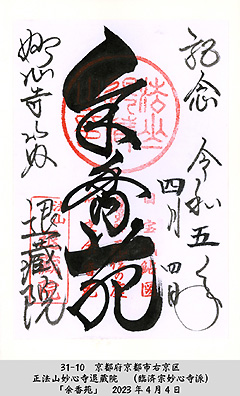 記念 令和五年
四月四日
余香苑
妙心寺山内
退蔵院
31-10 京都府京都市右京区
正法山妙心寺退蔵院 (臨済宗妙心寺派)
「余香苑」 2023年4月4日